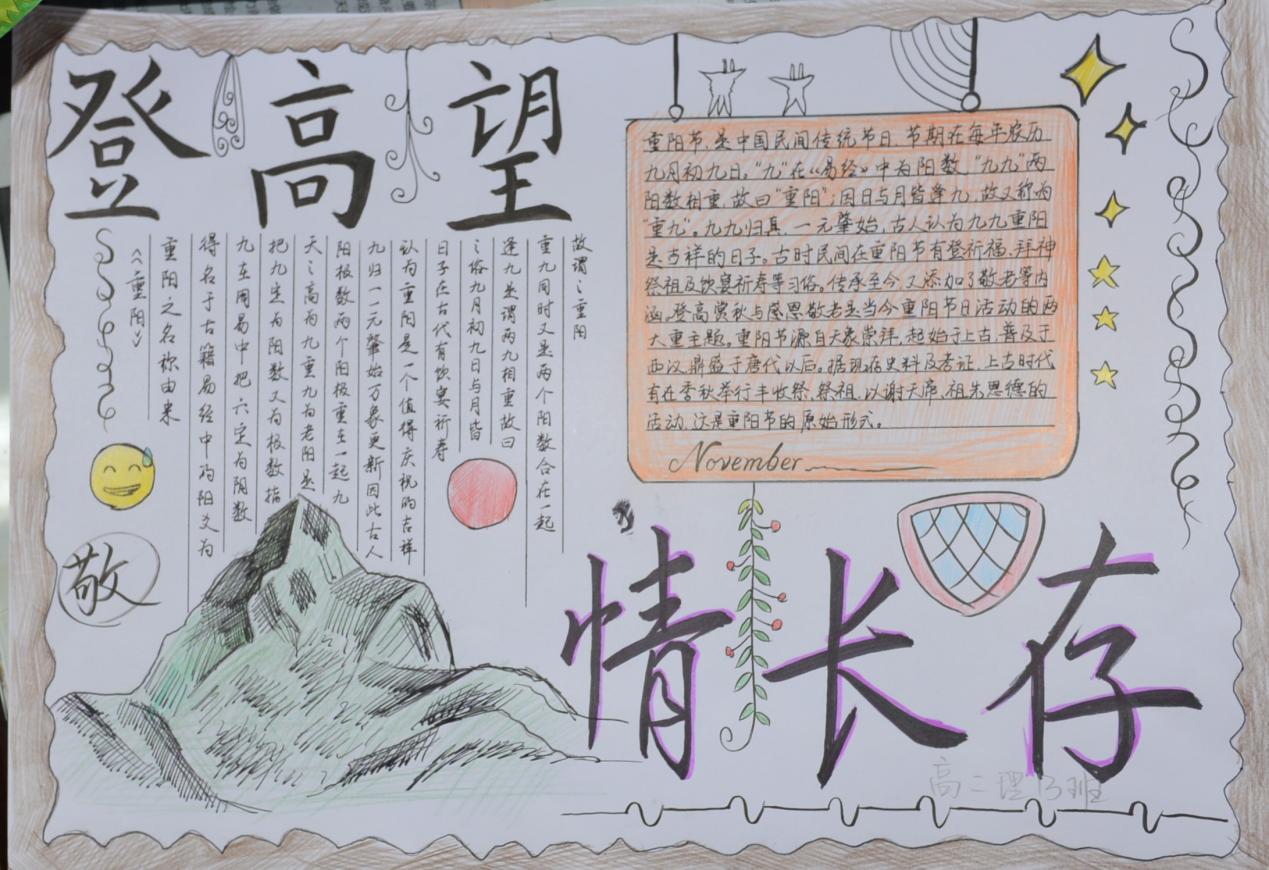 登高望
《重阳》
重阳之名称由来
得名于古籍易经中的阳爻为
九在周易中把六定为阴数
把九定为阳数又为极数指
天之高为九重九为老阳是
阳极数两个阳极重在一起九
九归一一元肇始万象更新因此古人
认为重阳是一个值得庆祝的吉祥
日子在古代有饮宴祈寿
之俗九月初九日与月皆
逢九是谓两九相重故曰
重九同时又是两个阳数合在一起
故谓之重阳
敬
重阳节，是中国民间传统节日，节期在每年农历
九月初九日。“九”在《易经》中为阳数，“九九”两
阳数相重，故曰“重阳”；因日与月皆逢九，故又称为
“重九”。九九归真，一元肇始，古人认为九九重阳
是吉祥的日子。古时民间在重阳节有登祈福、拜神
祭祖及饮宴祈寿等习俗。传承至今，又添加了敬老等内
涵。登高赏秋与感恩敬老是当今重阳节日活动的两
大重主题。重阳节源自天象崇拜，起始于上古，普及于
西汉，鼎盛于唐代以后。据现存史料及考证，上古时代
有在季秋举行丰收祭、祭祖，以谢天帝、祖先恩德的
活动，这是重阳节的原始形式。
November
情长存
高二理13班